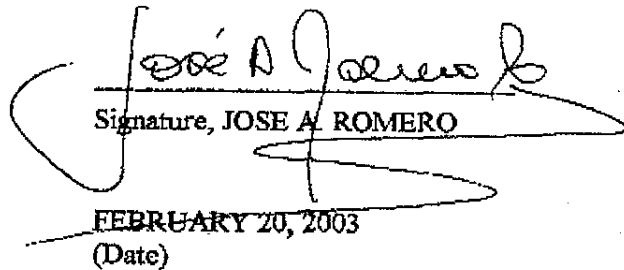 José A Romero
Signature, JOSE A. ROMERO
FEBRUARY 20, 2003
(Date)